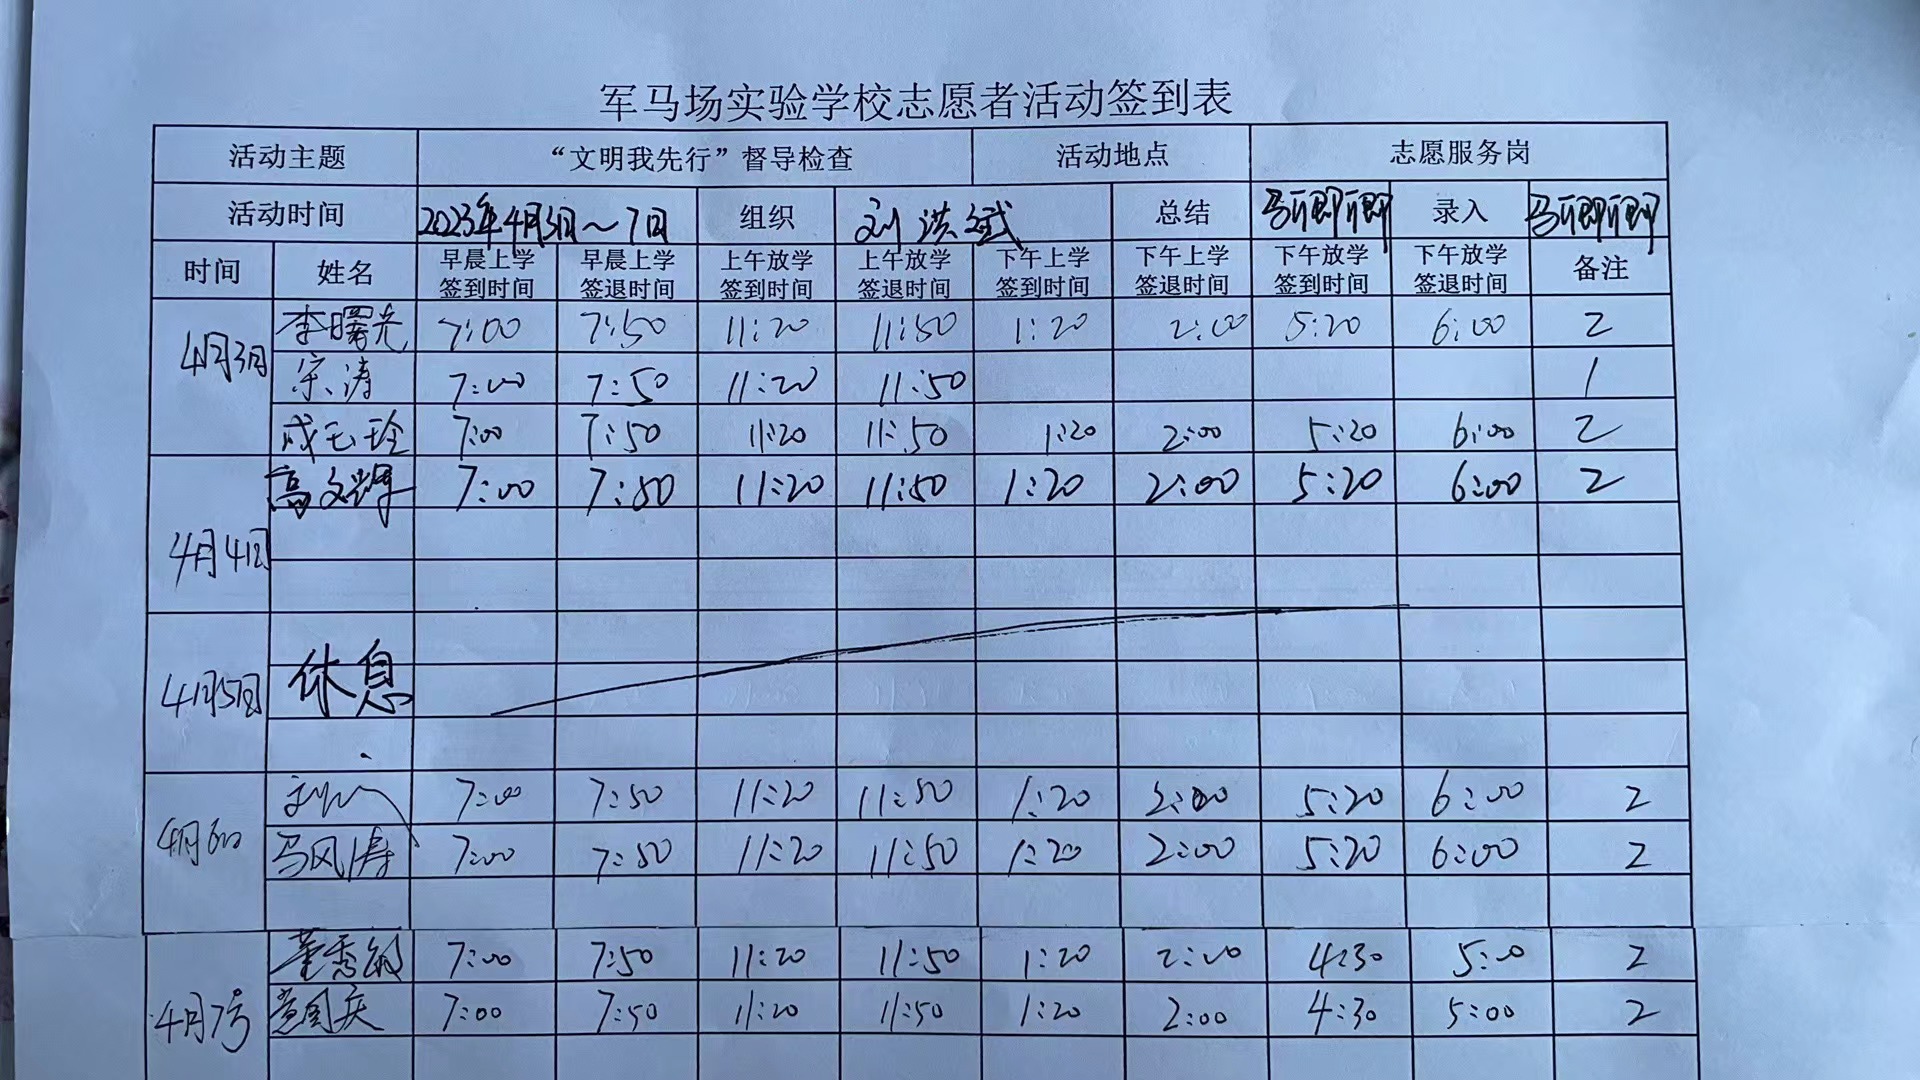 军马场实验学校志愿者活动签到表
活动主题 “文明我先行”督导检查 活动地点 志愿服务岗
活动时间 2023年4月3日~7日 组织 刘洪斌 总结 马 录入 马
时间 姓名 早晨上学签到时间 早晨上学签退时间 上午放学签到时间 上午放学签退时间 下午上学签到时间 下午上学签退时间 下午放学签到时间 下午放学签退时间 备注
4月3日 李曙光 7:00 7:50 11:20 11:50 1:20 2:00 5:20 6:00 2
宋涛 7:00 7:50 11:20 11:50 1
成玉玲 7:00 7:50 11:20 11:50 1:20 2:00 5:20 6:00 2
4月4日 高文辉 7:00 7:50 11:20 11:50 1:20 2:00 5:20 6:00 2
4月5日 休息
4月6日 刘 7:00 7:50 11:20 11:50 1:20 2:00 5:20 6:00 2
马风涛 7:00 7:50 11:20 11:50 1:20 2:00 5:20 6:00 2
4月7号 董秀敏 7:00 7:50 11:20 11:50 1:20 2:00 4:30 5:00 2
黄国庆 7:00 7:50 11:20 11:50 1:20 2:00 4:30 5:00 2